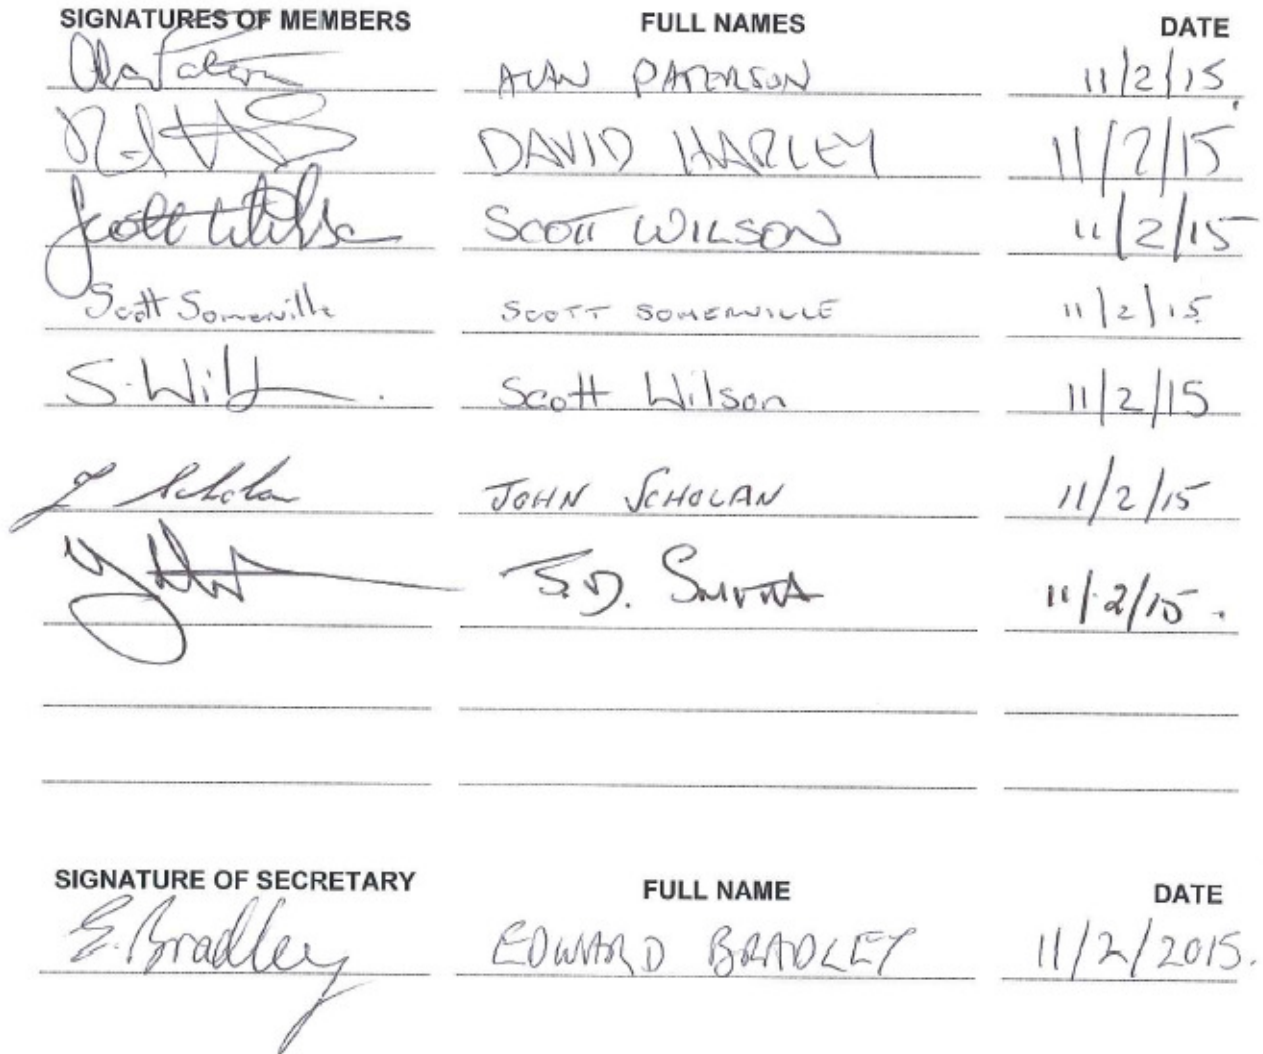 SIGNATURES OF MEMBERS FULL NAMES DATE
Alan Paterson ALAN PATERSON 11/2/15
DAVID HARLEY 11/2/15
Scott Wilson SCOTT WILSON 11/2/15
Scott Somerville SCOTT SOMERVILLE 11/2/15
S. Wilson Scott Wilson 11/2/15
J Scholan JOHN SCHOLAN 11/2/15
J.D. SMITH 11/2/15.
SIGNATURE OF SECRETARY FULL NAME DATE
E. Bradley EDWARD BRADLEY 11/2/2015.